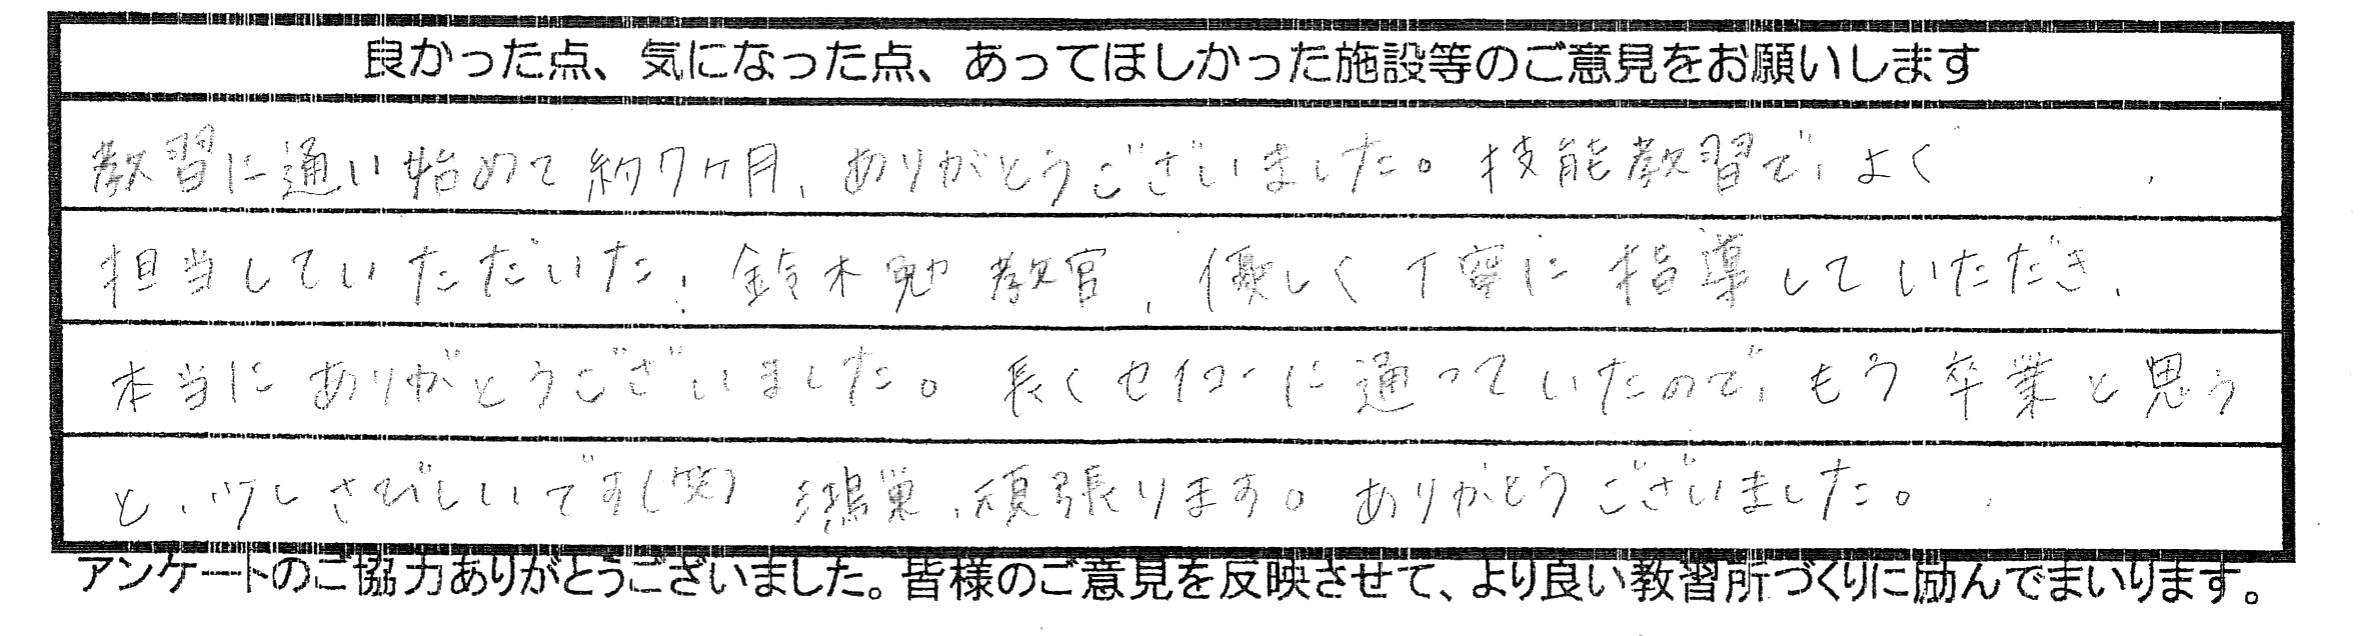 良かった点、気になった点、あってほしかった施設等のご意見をお願いします
教習に通い始めて約7ヶ月、ありがとうございました。技能教習で、よく
担当していただいた、鈴木勉教官、優しく丁寧に指導していただき、
本当にありがとうございました。長くセイコーに通っていたので、もう卒業と思う
と、少しさびしいです(笑) 鴻巣、頑張ります。ありがとうございました。
アンケートのご協力ありがとうございました。皆様のご意見を反映させて、より良い教習所づくりに励んでまいります。